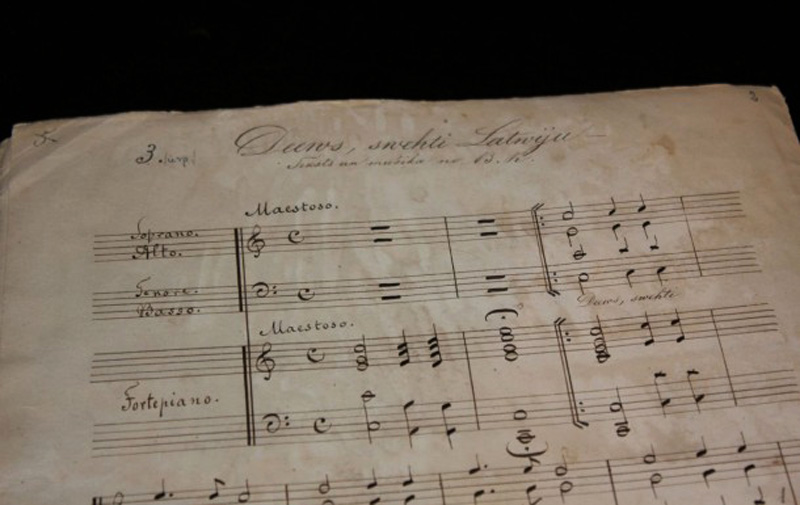 5.
2
3.
Deews, swehti Latwiju
Teksts un musika no
Maestoso.
Soprano.
Alto.
Tenore.
Basso.
Deews, swehti
Maestoso.
Fortepiano.